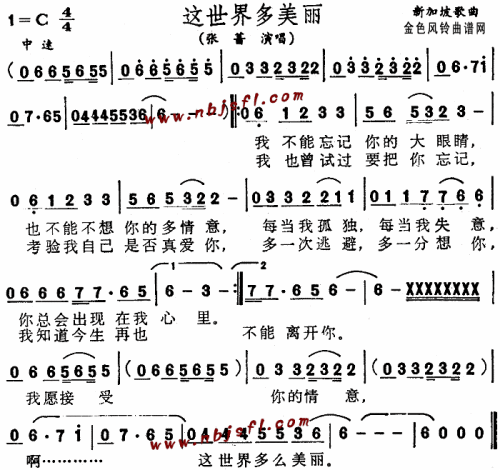 这世界多美丽
1=C 4/4
新加坡歌曲
中速
(张蔷 演唱)
金色风铃曲谱网
(0665655|0665655|0332322|0332322|06·7i|
07·65|04445536|6---):‖06 1233|56 5323-|
www.nbjsfl.com
我 不能忘记 你的 大眼睛,
我 也曾试过 要把 你 忘记,
06 1233|565322-|0332211|011776 6|
也不能不想 你的多情意, 每当我孤独, 每当我失 意,
考验我自己 是否真爱你, 多一次逃 避, 多一分想 你,
066677·65|6-3-:‖77·65 56|6--6-|XXXXXXXX|
你总会出现 在我 心 里。
我知道今生 再也 不能 离开你。
066 5655|(0665655)|03 32322|(0332322)|
我愿接 受 你的情 意,
06·7i|07·65|04445536|6---|6000‖
www.nbjsfl.com
啊………… 这世界多么美丽。